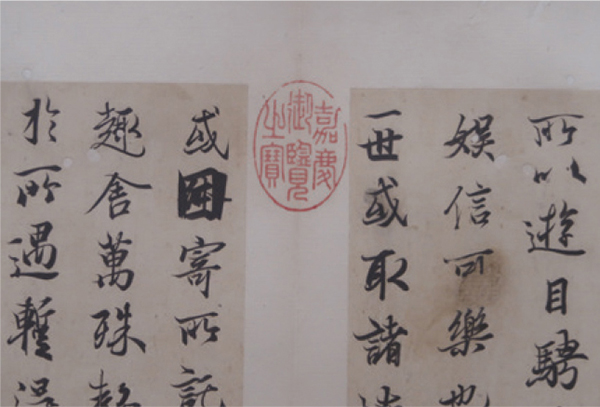 所以遊目騁
娛信可樂也
一世或取諸
嘉慶
御覽
之寶
或因寄所託
趣舍萬殊靜
於所遇蹔得